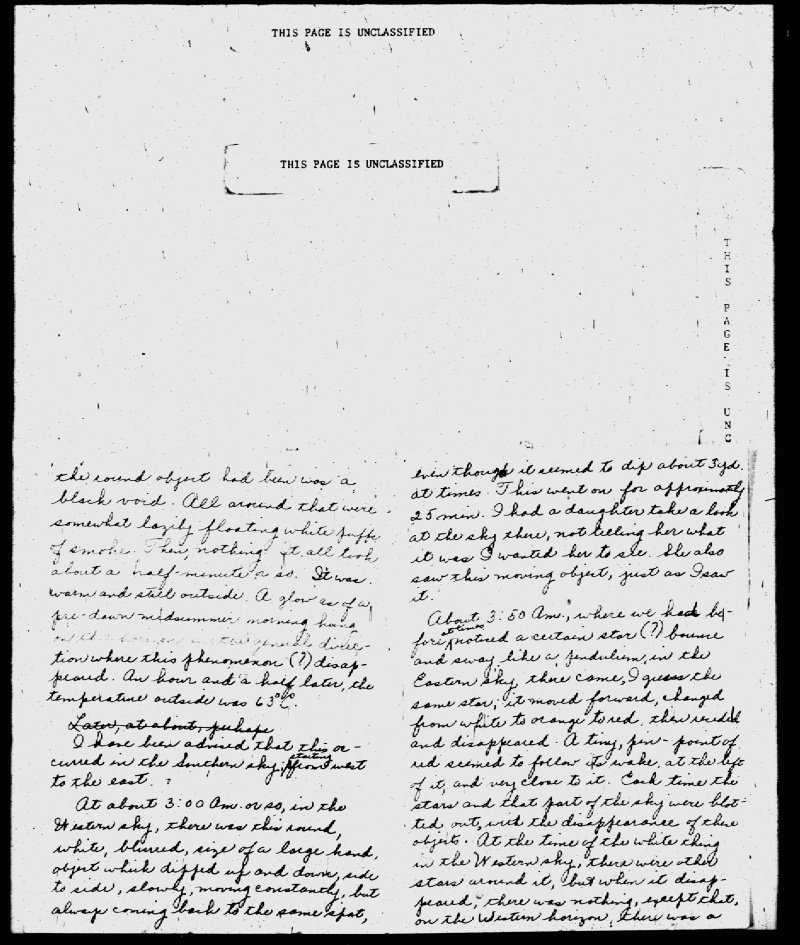 THIS PAGE IS UNCLASSIFIED
THIS PAGE IS UNCLASSIFIED
THIS PAGE IS UNC
the round object had been was a
black void. All around that were
somewhat lazily floating white puffs
of smoke. Then, nothing. It all took
about a half-minute or so. It was
warm and still outside. A glow as of a
pre-dawn midsummer morning hung
on the horizon in the general direc-
tion where this phenomenon (?) disap-
peared. An hour and a half later, the
temperature outside was 63°
Later, at about, perhaps
I have been advised that this oc-
curred in the Southern sky, starting from west
to the east.
At about 3:00 Am. or so, in the
Western sky, there was this round,
white, blurred, size of a large hand,
object which dipped up and down, side
to side, slowly, moving constantly, but
always coming back to the same spot,
even though it seemed to dip about 3 yd.
at times. This went on for approximately
25 min. I had a daughter take a look
at the sky there, not telling her what
it was I wanted her to see. She also
saw this moving object, just as I saw
it.
About 3:50 Am., where we had be-
fore at times noticed a certain star (?) bounce
and sway like a pendulum, in the
Eastern sky, there came, I guess the
same star, it moved forward, changed
from white to orange to red, then receded
and disappeared. A tiny, pin-point of
red seemed to follow its wake, at the left
of it, and very close to it. Each time the
stars and that part of the sky were blot-
ted out, with the disappearance of these
objects. At the time of the white thing
in the Western sky, there were other
stars around it, but when it disap-
peared, there was nothing, except that,
on the Western horizon, there was a